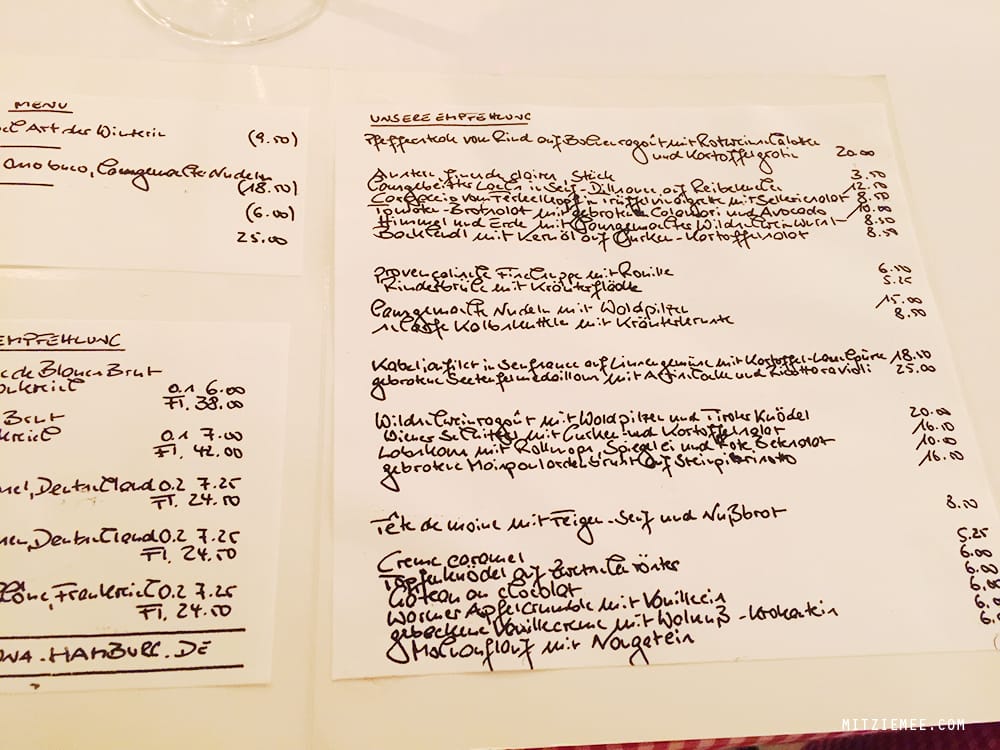 MENU
Art der Winzerin (9.50)
Ossobuco, hausgemachte Nudeln
(18.50)
(6.00)
25.00
EMPFEHLUNG
de Blancs Brut
0.1 6.00
Fl. 38.00
Brut
0.1 7.00
Fl. 42.00
Deutschland 0.2 7.25
Fl. 24.50
Deutschland 0.2 7.25
Fl. 24.50
Frankreich 0.2 7.25
Fl. 24.50
.HAMBURG.DE
UNSERE EMPFEHLUNG
Pfeffersteak vom Rind auf Bohnenragoût mit Rotweinschalotten
und Kartoffelgratin 20.00
Austern, fine de claire, Stück 3.50
hausgebeizter Lachs in Senf-Dillsauce auf Reibekuchen 12.50
Carpaccio vom Ferkelkopf in Trüffelvinaigrette mit Selleriesalat 8.50
Tomaten-Brotsalat mit gebratenen Calamari und Avocado 10.00
Himmel und Erde mit hausgemachter Wildschweinwurst 8.50
Backhendl mit Kernöl auf Gurken-Kartoffelsalat 8.50
Provencalische Fischsuppe mit Rouille 6.50
Rinderbrühe mit Kräuterflädle 5.25
hausgemachte Nudeln mit Waldpilzen 15.00
Kalbskutteln mit Kräuterkruste 8.50
Kabeljaufilet in Senfsauce auf Linsengemüse mit Kartoffel-Lauchpüree 18.50
gebratene Seeteufelmedaillons mit Artischocke und Ricottaravioli 25.00
Wildschweinragoût mit Waldpilzen und Tiroler Knödel 20.00
Wiener Schnitzel mit Gurken- und Kartoffelsalat 16.50
Labskaus mit Rollmops, Spiegelei und Rote Betesalat 10.00
gebratene Maispoulardenbrust auf Steinpilzrisotto 16.00
Tête de moine mit Feigen-Senf und Nußbrot 8.50
Creme caramel 5.25
Topfenknödel auf Zwetschenröster 6.00
Gateau au chocolat 6.00
Warmer Apfelcrumble mit Vanilleeis 6.0
gebackene Vanillecreme mit Walnuß-Krokanteis 6.0
Mohnauflauf mit Nougateis
MITZIEMEE.COM